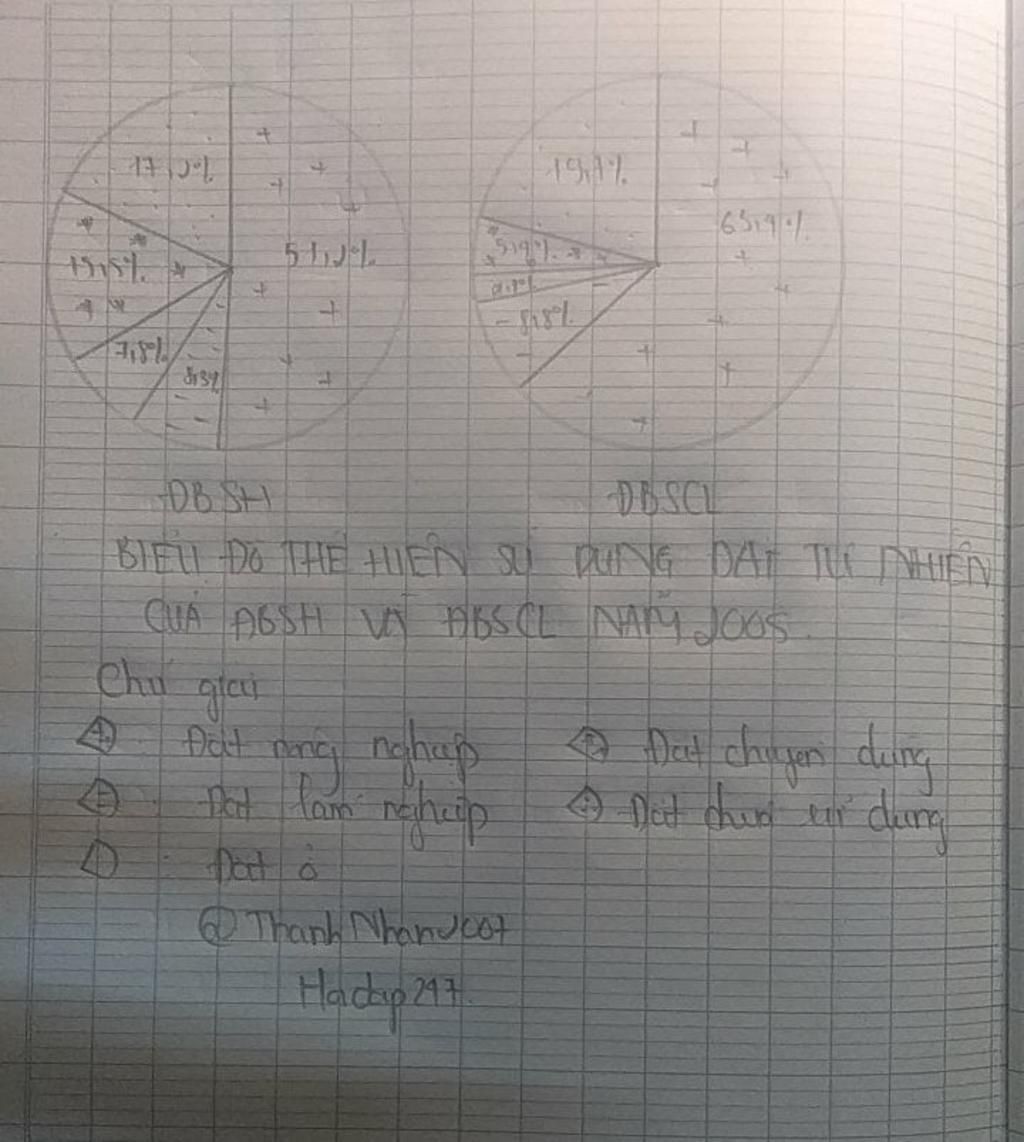 17,2%
51,2%
15,5%
7,8%
8,3%
19,1%
63,4%
5,9%
8,8%
ĐBSH ĐBSCL
BIỂU ĐỒ THỂ HIỆN SỬ DỤNG ĐẤT TỰ NHIÊN
CỦA ĐBSH VÀ ĐBSCL NĂM 2005
Chú giải
Đất nông nghiệp Đất chuyên dùng
Đất lâm nghiệp Đất chưa sử dụng
Đất ở
@ThanhNhan2007
Hadap247